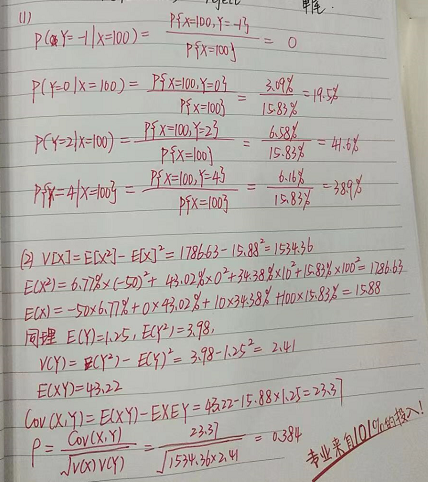 (1)
P(Y=-1|X=100) = P{X=100,Y=-1} / P{X=100} = 0
P(Y=0|X=100) = P{X=100,Y=0} / P{X=100} = 3.09% / 15.83% = 19.5%
P(Y=2|X=100) = P{X=100,Y=2} / P{X=100} = 6.58% / 15.83% = 41.6%
P{Y=4|X=100} = P{X=100,Y=4} / P{X=100} = 6.16% / 15.83% = 38.9%
(2) V[X]=E[X²]-E[X]²=1786.63-15.88²=1534.36
E(X²)=6.77%×(-50)²+43.02%×0²+34.38%×10²+15.83%×100²=1786.63
E(X)=-50×6.77%+0×43.02%+10×34.38%+100×15.83%=15.88
同理 E(Y)=1.25, E(Y²)=3.98,
V(Y)=E(Y²)-E(Y)²=3.98-1.25²=2.41
E(XY)=43.22
Cov(X,Y)=E(XY)-EXEY=43.22-15.88×1.25=23.37
ρ = Cov(X,Y) / √V(X)V(Y) = 23.37 / √1534.36×2.41 = 0.384
专业来自101%的投入!